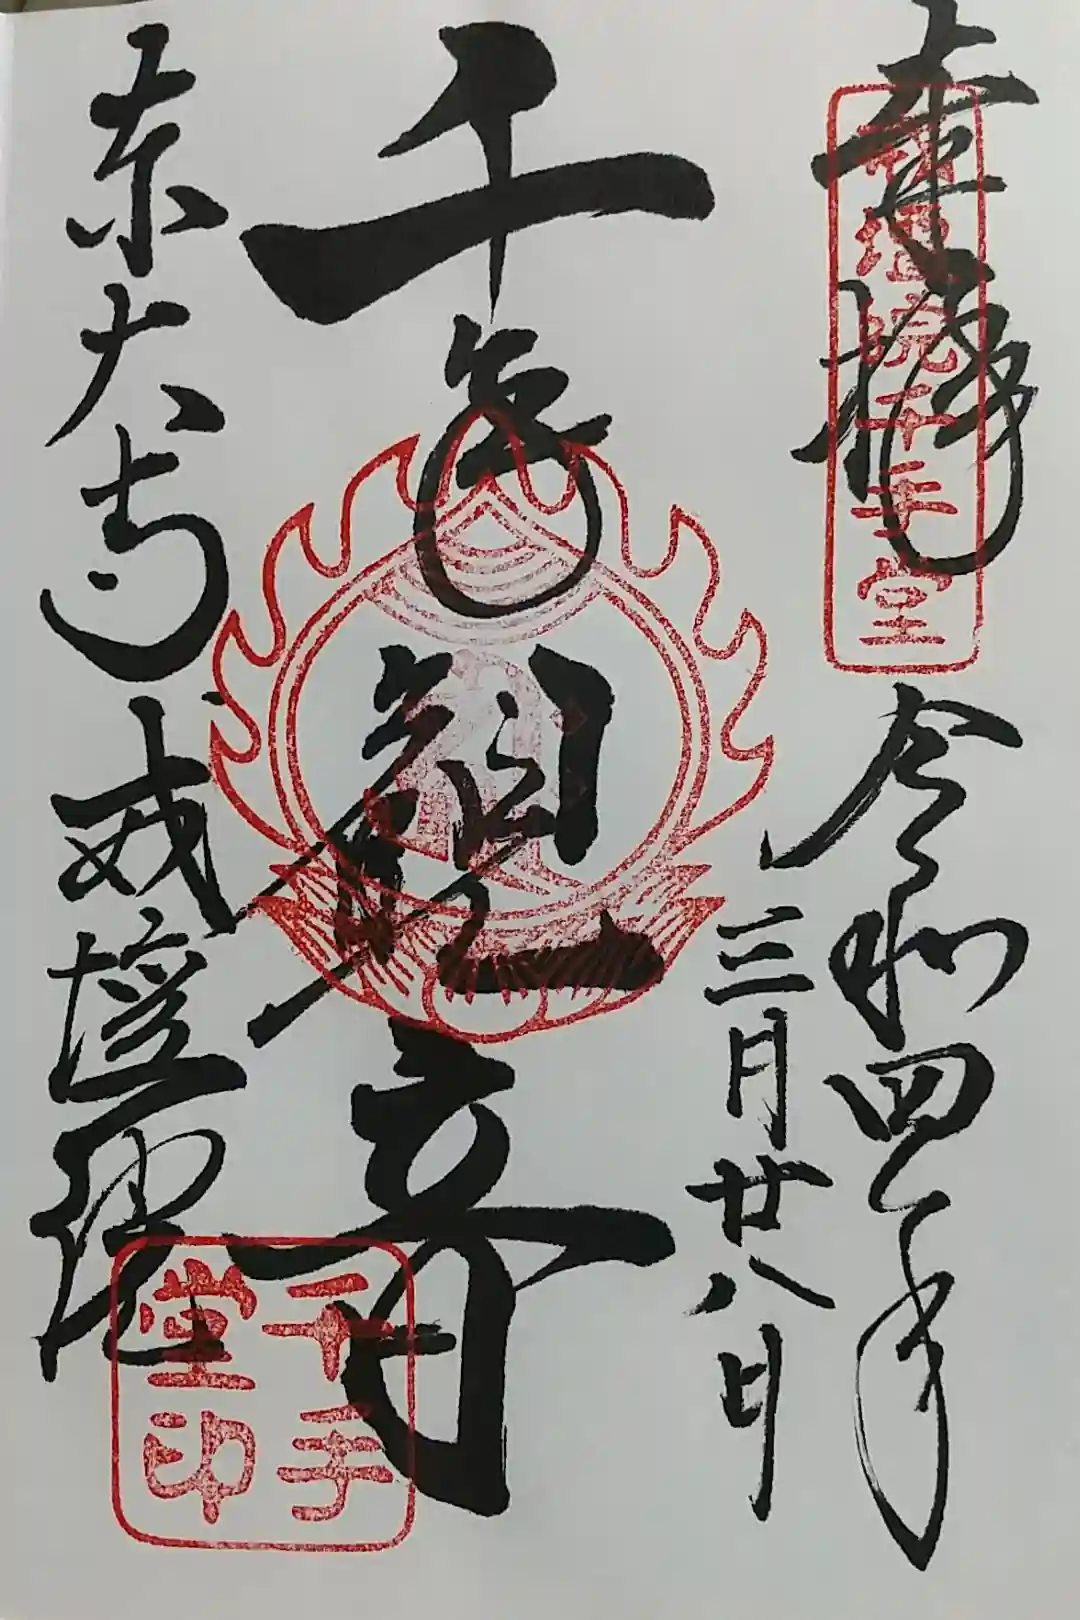 奉拝
戒壇院千手堂
令和四年
三月廿八日
千手観音
東大寺戒壇院
千手
堂印